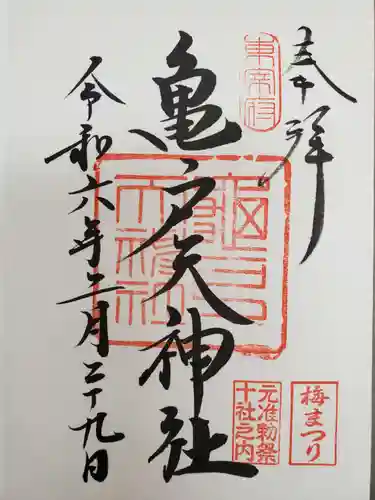 奉拝
東宰府
亀戸天神社
亀戸天神社
元准勅祭
十社之内
梅まつり
令和六年二月二十九日